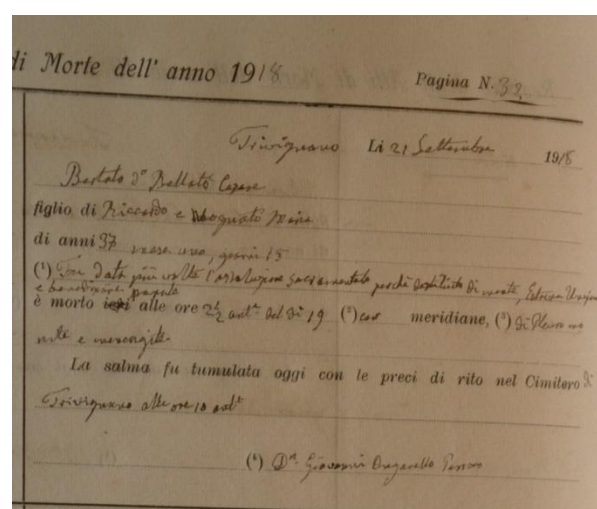 di Morte dell' anno 1918 Pagina N. 33
Trivignano Li 21 Settembre 1918
Bertato d° Bellato Cesare
figlio di Riccardo e Maria
di anni 37 mese uno, giorni 15
(¹) Fu data più volte l'assoluzione sacramentale perchè destituto di mente, Estrema Unzione
e benedizione papale
è morto ieri alle ore 2½ antᵉ del dì 19 (²) meridiane, (³) di
e meningite.
La salma fu tumulata oggi con le preci di rito nel Cimitero di
Trivignano alle ore 10 antᵉ
(⁴) Dⁿ Giovanni